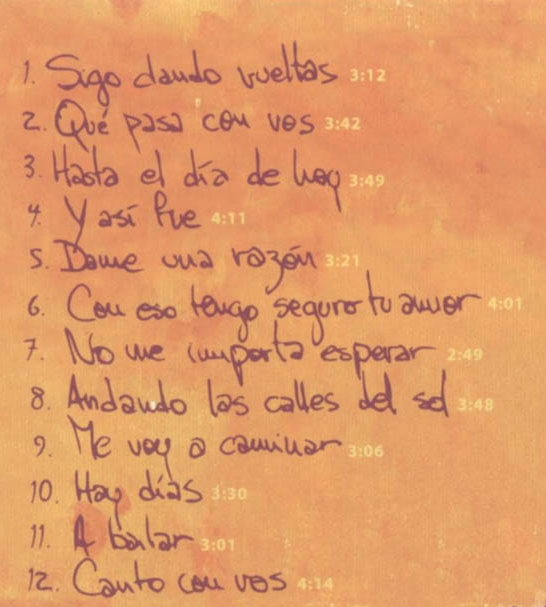 1. Sigo dando vueltas 3:12
2. Qué pasa con vos 3:42
3. Hasta el día de hoy 3:49
4. Y así fue 4:11
5. Dame una razón 3:21
6. Con eso tengo seguro tu amor 4:01
7. No me importa esperar 2:49
8. Andando las calles del sol 3:48
9. Me voy a caminar 3:06
10. Hay días 3:30
11. A bailar 3:01
12. Canto con vos 4:14